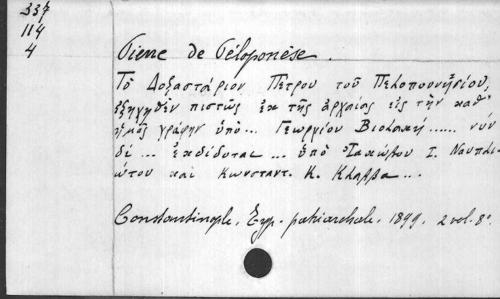 337
114
4
Pierre de Péloponèse.
Τὸ Δοξαστάριον Πέτρου τοῦ Πελοποννησίου,
ἐξηγηθὲν πιστῶς ἐκ τῆς ἀρχαίας εἰς τὴν καθ'
ἡμᾶς γραφὴν ὑπὸ... Γεωργίου Βιολάκη...... νῦν
δὲ ... ἐκδίδοται ... ὑπὸ Ἰακώβου Ι. Ναυπλι-
ώτου καὶ Κωνσταντ. Κ. Κλάββα ...
Constantinople, Typ. patriarchale, 1899. 2 vol. 8°